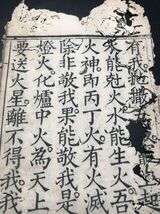 有我
能尅火水能生火五
火神即丙丁火有火滅
除非敬我男能敬我定
燈火化爐中火為天上
要送火星離不得我我